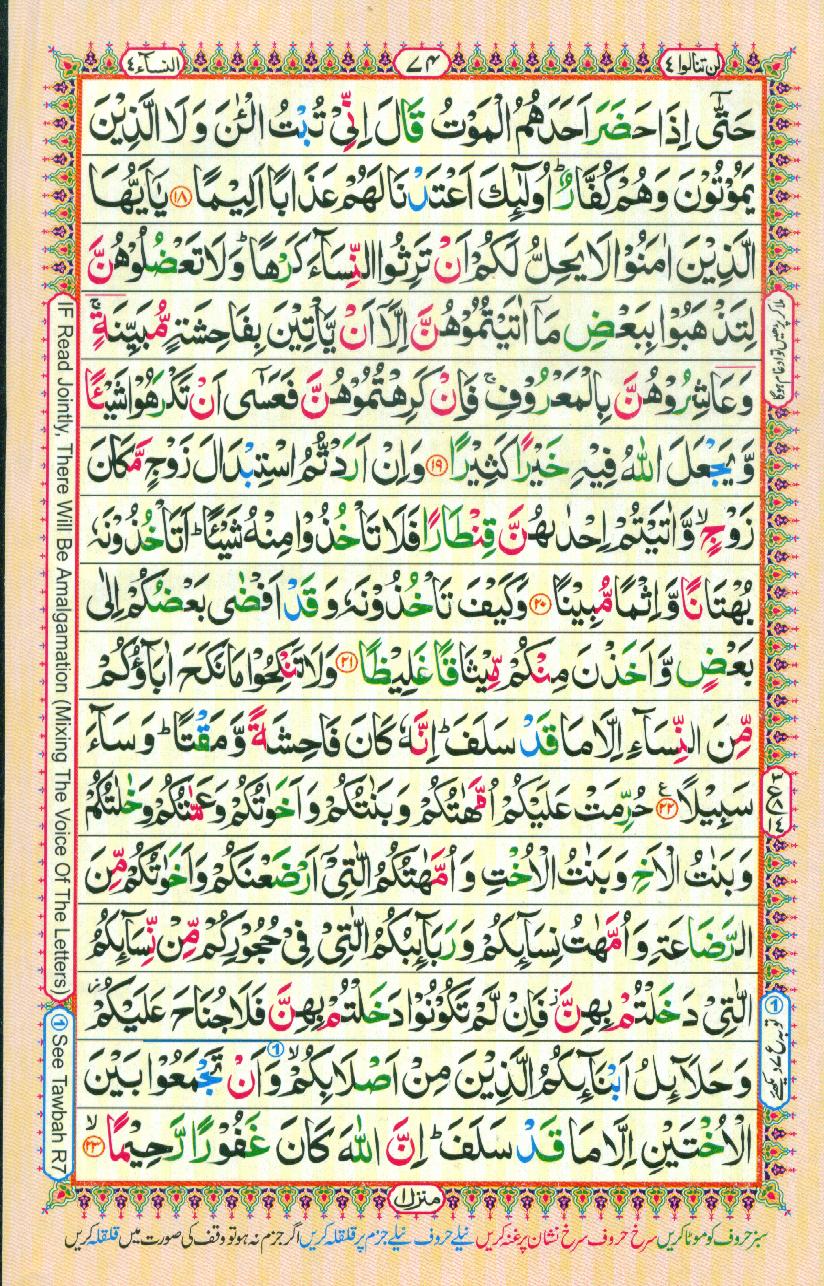 لن تنالوا ٤
٧٤
النسآء ٤
حَتّٰۤى اِذَا حَضَرَ اَحَدَهُمُ الْمَوْتُ قَالَ اِنِّىْ تُبْتُ الْـٰٔنَ وَ لَا الَّذِيْنَ
يَمُوْتُوْنَ وَهُمْ كُفَّارٌ ؕ اُولٰٓئِكَ اَعْتَدْنَا لَهُمْ عَذَابًا اَلِيْمًا ﴿۱۸﴾ يٰۤاَيُّهَا
الَّذِيْنَ اٰمَنُوْا لَا يَحِلُّ لَكُمْ اَنْ تَرِثُوا النِّسَآءَ كَرْهًا ؕ وَ لَا تَعْضُلُوْهُنَّ
لِتَذْهَبُوْا بِبَعْضِ مَاۤ اٰتَيْتُمُوْهُنَّ اِلَّاۤ اَنْ يَّاْتِيْنَ بِفَاحِشَةٍ مُّبَيِّنَةٍ ۚ
وَ عَاشِرُوْهُنَّ بِالْمَعْرُوْفِ ۚ فَاِنْ كَرِهْتُمُوْهُنَّ فَعَسٰۤى اَنْ تَكْرَهُوْا شَيْـًٔا
وَّ يَجْعَلَ اللّٰهُ فِيْهِ خَيْرًا كَثِيْرًا ﴿۱۹﴾ وَ اِنْ اَرَدْتُّمُ اسْتِبْدَالَ زَوْجٍ مَّكَانَ
زَوْجٍ ۙ وَّ اٰتَيْتُمْ اِحْدٰىهُنَّ قِنْطَارًا فَلَا تَاْخُذُوْا مِنْهُ شَيْـًٔا ؕ اَتَاْخُذُوْنَهٗ
بُهْتَانًا وَّ اِثْمًا مُّبِيْنًا ﴿۲۰﴾ وَ كَيْفَ تَاْخُذُوْنَهٗ وَ قَدْ اَفْضٰى بَعْضُكُمْ اِلٰى
بَعْضٍ وَّ اَخَذْنَ مِنْكُمْ مِّيْثَاقًا غَلِيْظًا ﴿۲۱﴾ وَ لَا تَنْكِحُوْا مَا نَكَحَ اٰبَآؤُكُمْ
مِّنَ النِّسَآءِ اِلَّا مَا قَدْ سَلَفَ ؕ اِنَّهٗ كَانَ فَاحِشَةً وَّ مَقْتًا ؕ وَ سَآءَ
سَبِيْلًا ﴿۲۲﴾ حُرِّمَتْ عَلَيْكُمْ اُمَّهٰتُكُمْ وَ بَنٰتُكُمْ وَ اَخَوٰتُكُمْ وَ عَمّٰتُكُمْ وَ خٰلٰتُكُمْ
وَ بَنٰتُ الْاَخِ وَ بَنٰتُ الْاُخْتِ وَ اُمَّهٰتُكُمُ الّٰتِىْۤ اَرْضَعْنَكُمْ وَ اَخَوٰتُكُمْ مِّنَ
الرَّضَاعَةِ وَ اُمَّهٰتُ نِسَآئِكُمْ وَ رَبَآئِبُكُمُ الّٰتِىْ فِىْ حُجُوْرِكُمْ مِّنْ نِّسَآئِكُمُ
الّٰتِىْ دَخَلْتُمْ بِهِنَّ ؗ فَاِنْ لَّمْ تَكُوْنُوْا دَخَلْتُمْ بِهِنَّ فَلَا جُنَاحَ عَلَيْكُمْ ؗ
وَ حَلَآئِلُ اَبْنَآئِكُمُ الَّذِيْنَ مِنْ اَصْلَابِكُمْ ۙ ① وَ اَنْ تَجْمَعُوْا بَيْنَ
الْاُخْتَيْنِ اِلَّا مَا قَدْ سَلَفَ ؕ اِنَّ اللّٰهَ كَانَ غَفُوْرًا رَّحِيْمًا ﴿۲۳﴾ ۙ
منزل ۱
سبز حروف کو موٹا کریں سرخ حروف سرخ نشان پر غنہ کریں نیلے حروف نیلے جزم پر قلقلہ کریں اگر جزم نہ ہو تو وقف کی صورت میں قلقلہ کریں
IF Read Jointly, There Will Be Amalgamation (Mixing The Voice Of The Letters)
① See Tawbah R7